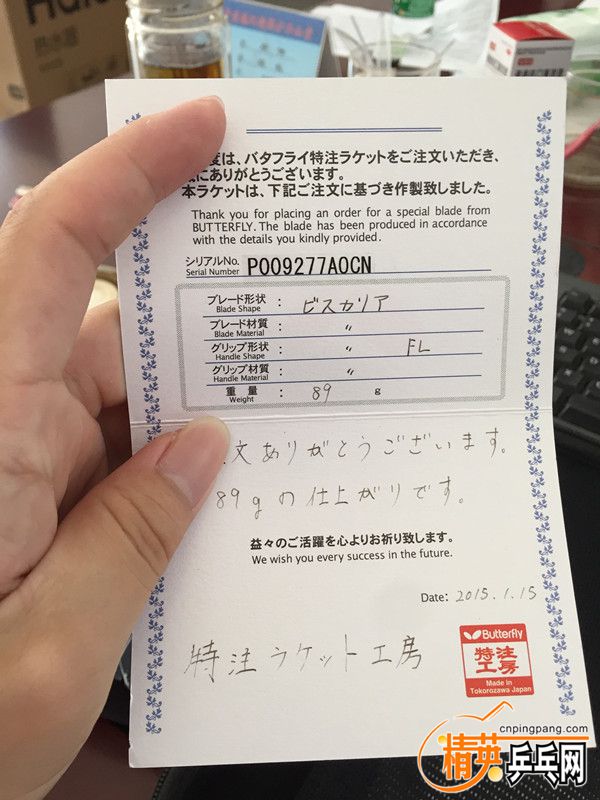 Haier
度は、バタフライ特注ラケットをご注文いただき、
にありがとうございます。
本ラケットは、下記ご注文に基づき作製致しました。
Thank you for placing an order for a special blade from
BUTTERFLY. The blade has been produced in accordance
with the details you kindly provided.
シリアルNo.
Serial Number P009277A0CN
ブレード形状 : ビスカリア
Blade Shape
ブレード材質 : 〃
Blade Material
グリップ形状 : 〃 FL
Handle Shape
グリップ材質 : 〃
Handle Material
重量 : 89 g
Weight
文ありがとうございます。
89gの仕上がりです。
益々のご活躍を心よりお祈り致します。
We wish you every success in the future.
Date: 2015.1.15
特注ラケット工房
Butterfly
特注
工房
Made in
Tokorozawa Japan
cnpingpang.com
精英乒乓网